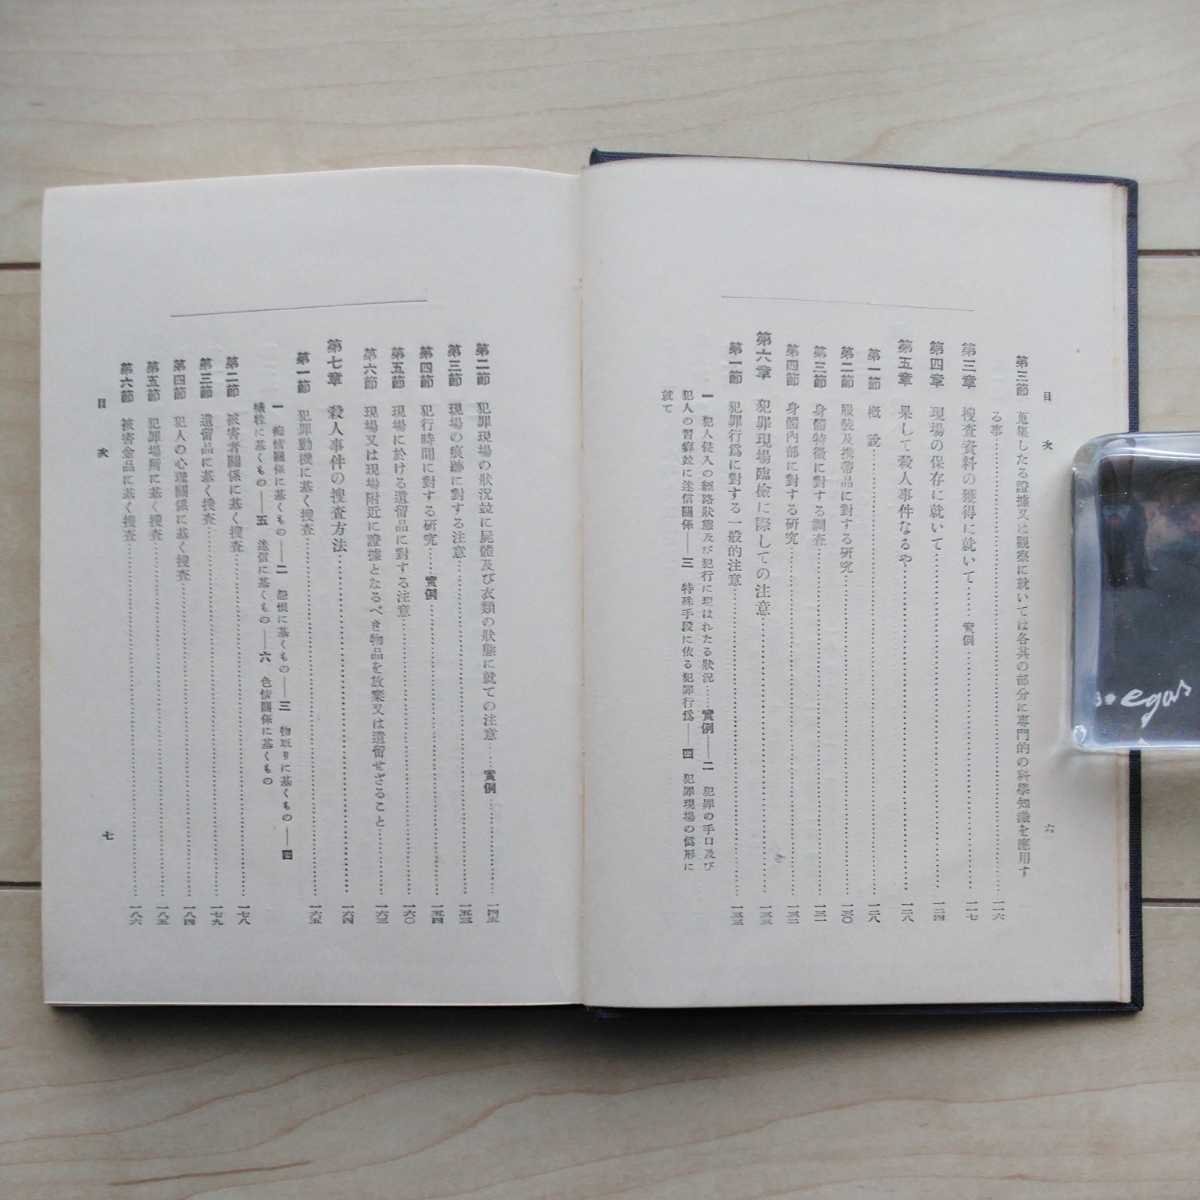 目次
六
第三節 蒐集したる證據又は觀察に就いては各其の部分に專門的の科學知識を應用す
る事…一一六
第三章 捜査資料の獲得に就いて…實例…一一七
第四章 現場の保存に就いて…一二四
第五章 果して殺人事件なるや…一二八
第一節 概說…一二八
第二節 服裝及携帶品に對する研究…一三〇
第三節 身體特徵に對する調査…一三一
第四節 身體內部に對する研究…一三二
第六章 犯罪現場臨檢に際しての注意…一三三
第一節 犯罪行爲に對する一般的注意…一三三
一 犯人侵入の經路狀態及び犯行に現はれたる狀況…實例——二 犯罪の手口及び
犯人の習癖並に迷信關係——三 特殊手段に依る犯罪行爲——四 犯罪現場の僞形に
就て
第二節 犯罪現場の狀況並に屍體及び衣類の狀態に就ての注意…實例…一四三
第三節 現場の痕跡に對する注意…一五三
第四節 犯行時間に對する研究…實例…一五四
第五節 現場に於ける遺留品に對する注意…一六〇
第六節 現場又は現場附近に證據となるべき物品を放棄又は遺留せざること…一六三
第七章 殺人事件の捜査方法…一六四
第一節 犯罪動機に基く捜査…一六五
一 痴情關係に基くもの——二 怨恨に基くもの——三 物取りに基くもの——四
に基くもの——五 迷信に基くもの——六 色情關係に基くもの
第二節 被害者關係に基く捜査…一七八
第三節 遺留品に基く捜査…一七九
第四節 犯人の心理關係に基く捜査…一八四
第五節 犯罪場所に基く捜査…一八五
第六節 被害金品に基く捜査…一八六
目次
七
egas